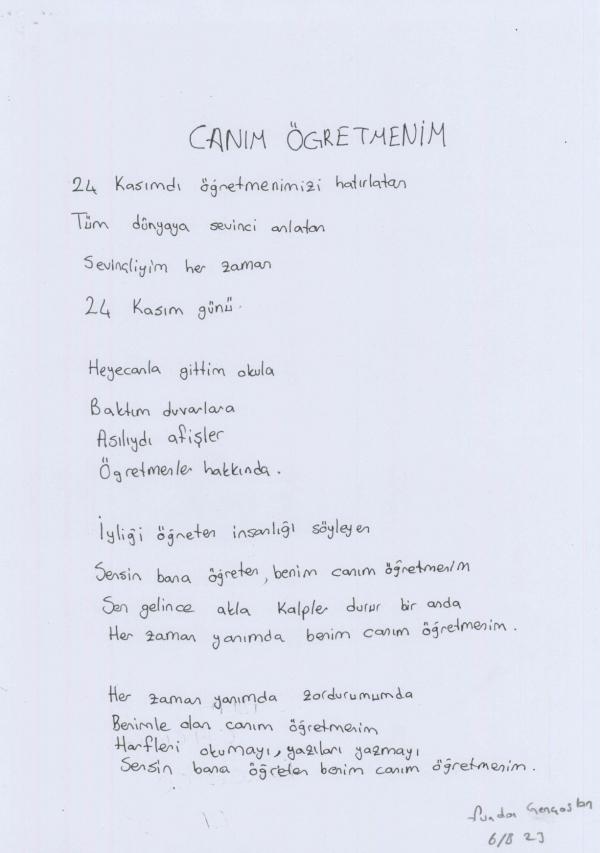 CANIM ÖGRETMENİM
24 Kasımdı öğretmenimizi hatırlatan
Tüm dünyaya sevinci anlatan
Sevinçliyim her zaman
24 Kasım günü.
Heyecanla gittim okula
Baktım duvarlara
Asılıydı afişler
Ögretmenler hakkında.
İyliği öğreten insanlığı söyleyen
Sensin bana öğreten, benim canım öğretmenim
Sen gelince akla kalpler durur bir anda
Her zaman yanımda benim canım öğretmenim.
Her zaman yanımda zordurumumda
Benimle olan canım öğretmenim
Harfleri okumayı, yazıları yazmayı
Sensin bana öğreten benim canım öğretmenim.
6/B 23